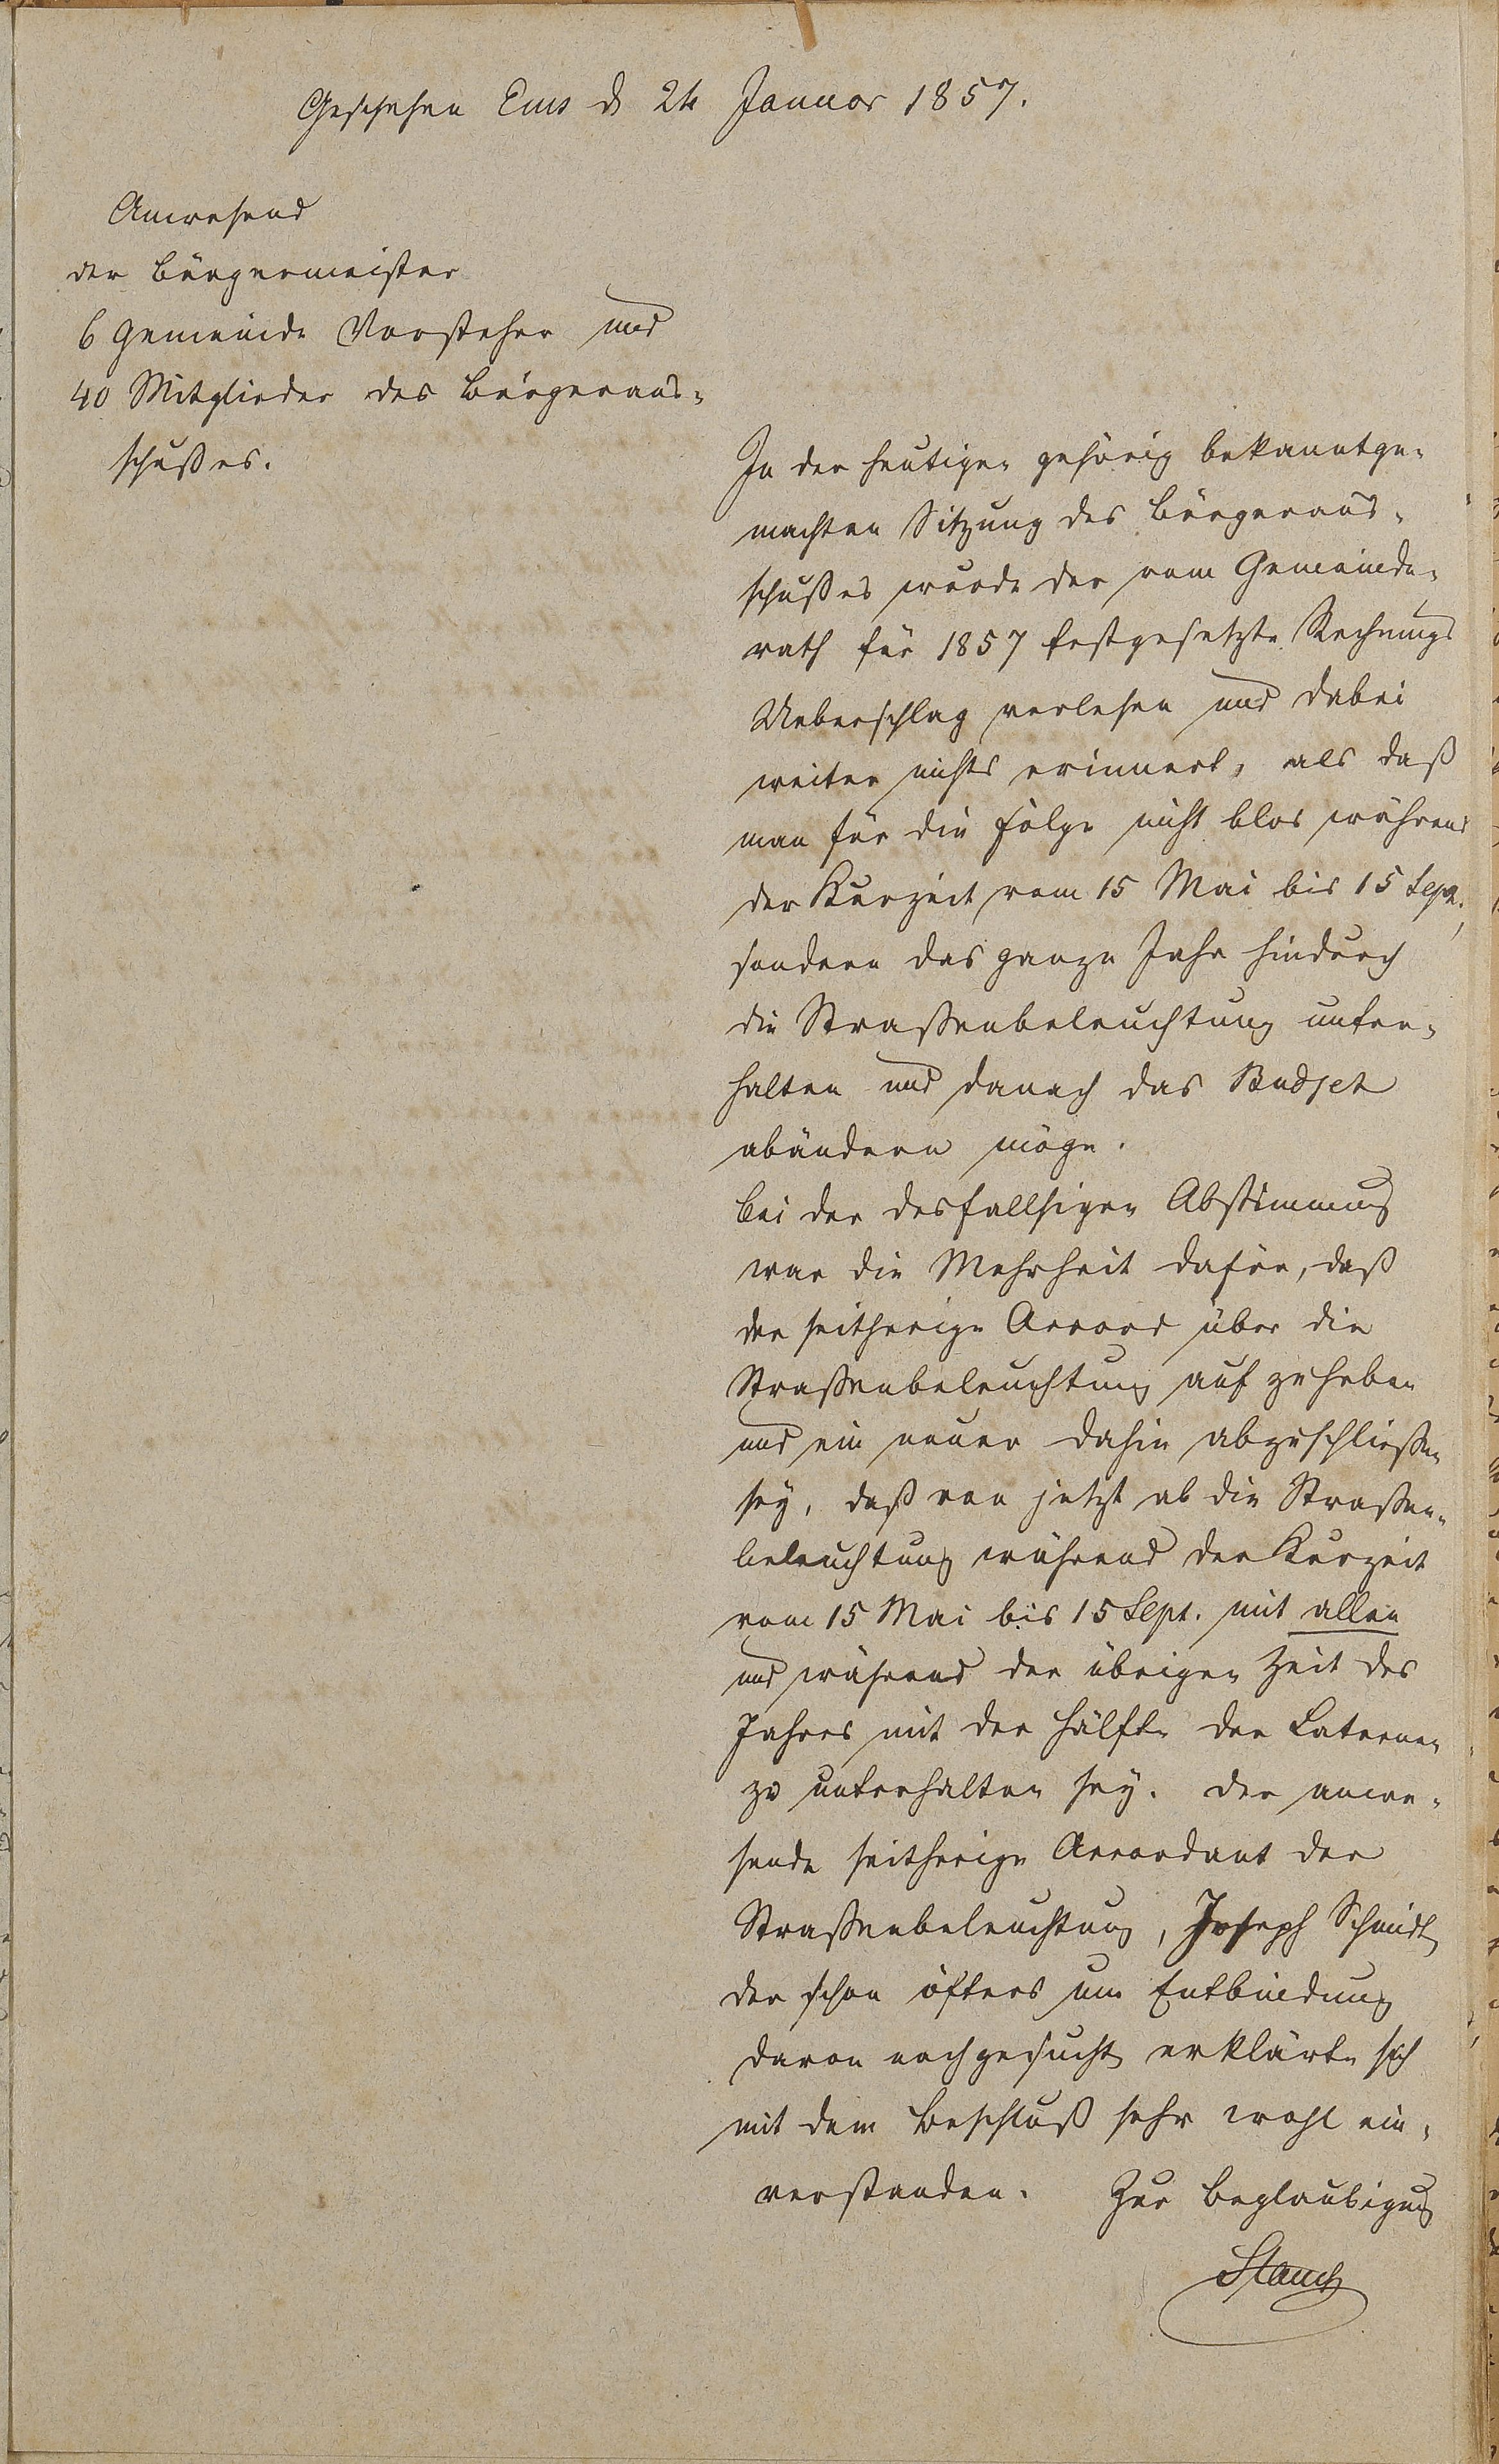 Geschehen Ems d 24 Januar 1857.
Anwesend
der Bürgermeister
6 Gemeinde Vorsteher und
40 Mitglieder des Bürgeraus-
schußes.
In der heutigen gehörig bekanntge-
machten Sitzung des Bürgeraus-
schußes wurde der vom Gemeinde-
rath für 1857 festgesetzte Rechnungs
Ueberschlag verlesen und dabei
weiter nichts erinnert, als daß
man für die Folge nicht blos während
der Kurzeit vom 15 Mai bis 15 Sept.,
sondern das ganze Jahr hindurch
die Straßenbeleuchtung unter-
halten und danach das Budjet
abändern möge.
Bei der desfallsigen Abstimmung
war die Mehrheit dafür, daß
der seitherige Accord über die
Straßenbeleuchtung auf zu heben
und ein neuer dahin abzuschließen
sey, daß von jetzt ab die Straßen-
beleuchtung während der Kurzeit
vom 15 Mai bis 15 Sept. mit allen
und während der übrigen Zeit des
Jahres mit der Hälfte der Laternen
zu unterhalten sey. Der anwe-
sende seitherige Accordant der
Straßenbeleuchtung, Joseph Schmidt
der schon öfters um Entbindung
davon nachgesucht erklärte sich
mit dem Beschluß sehr wohl ein-
verstanden. Zur Beglaubigung
Stauch